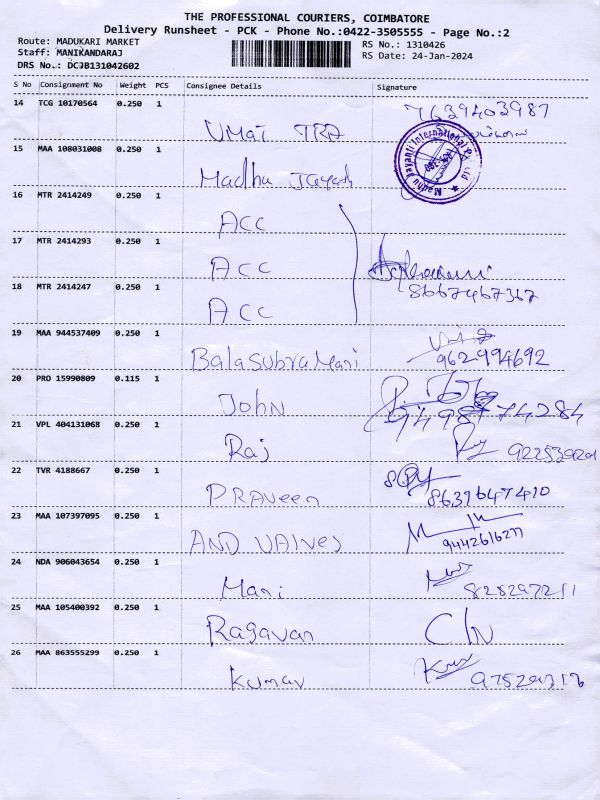 THE PROFESSIONAL COURIERS, COIMBATORE
Delivery Runsheet - PCK - Phone No.:0422-3505555 - Page No.:2
Route: MADUKARI MARKET
RS No.: 1310426
Staff: MANIKANDARAJ
RS Date: 24-Jan-2024
DRS No.: DCJB131042602
S No Consignment No Weight PCS Consignee Details Signature
14 TCG 10170564 0.250 1 7639403987
UMAI TRA
15 MAA 108031008 0.250 1 Madhu Jayanti International Pvt Ltd
Madhu Jayath
16 MTR 2414249 0.250 1
ACC
17 MTR 2414293 0.250 1
ACC
8667467367
18 MTR 2414247 0.250 1
ACC
19 MAA 944537409 0.250 1
BalasubraMani 962994692
20 PRO 15990809 0.115 1
John 9498774284
21 VPL 404131068 0.250 1
Raj
22 TVR 4188667 0.250 1
PRAVeen 8637647410
23 MAA 107397095 0.250 1
AND VAlVes 9442616277
24 NDA 906043654 0.250 1
Mani 828297211
25 MAA 105400392 0.250 1
Ragavan
26 MAA 863555299 0.250 1
Kumar